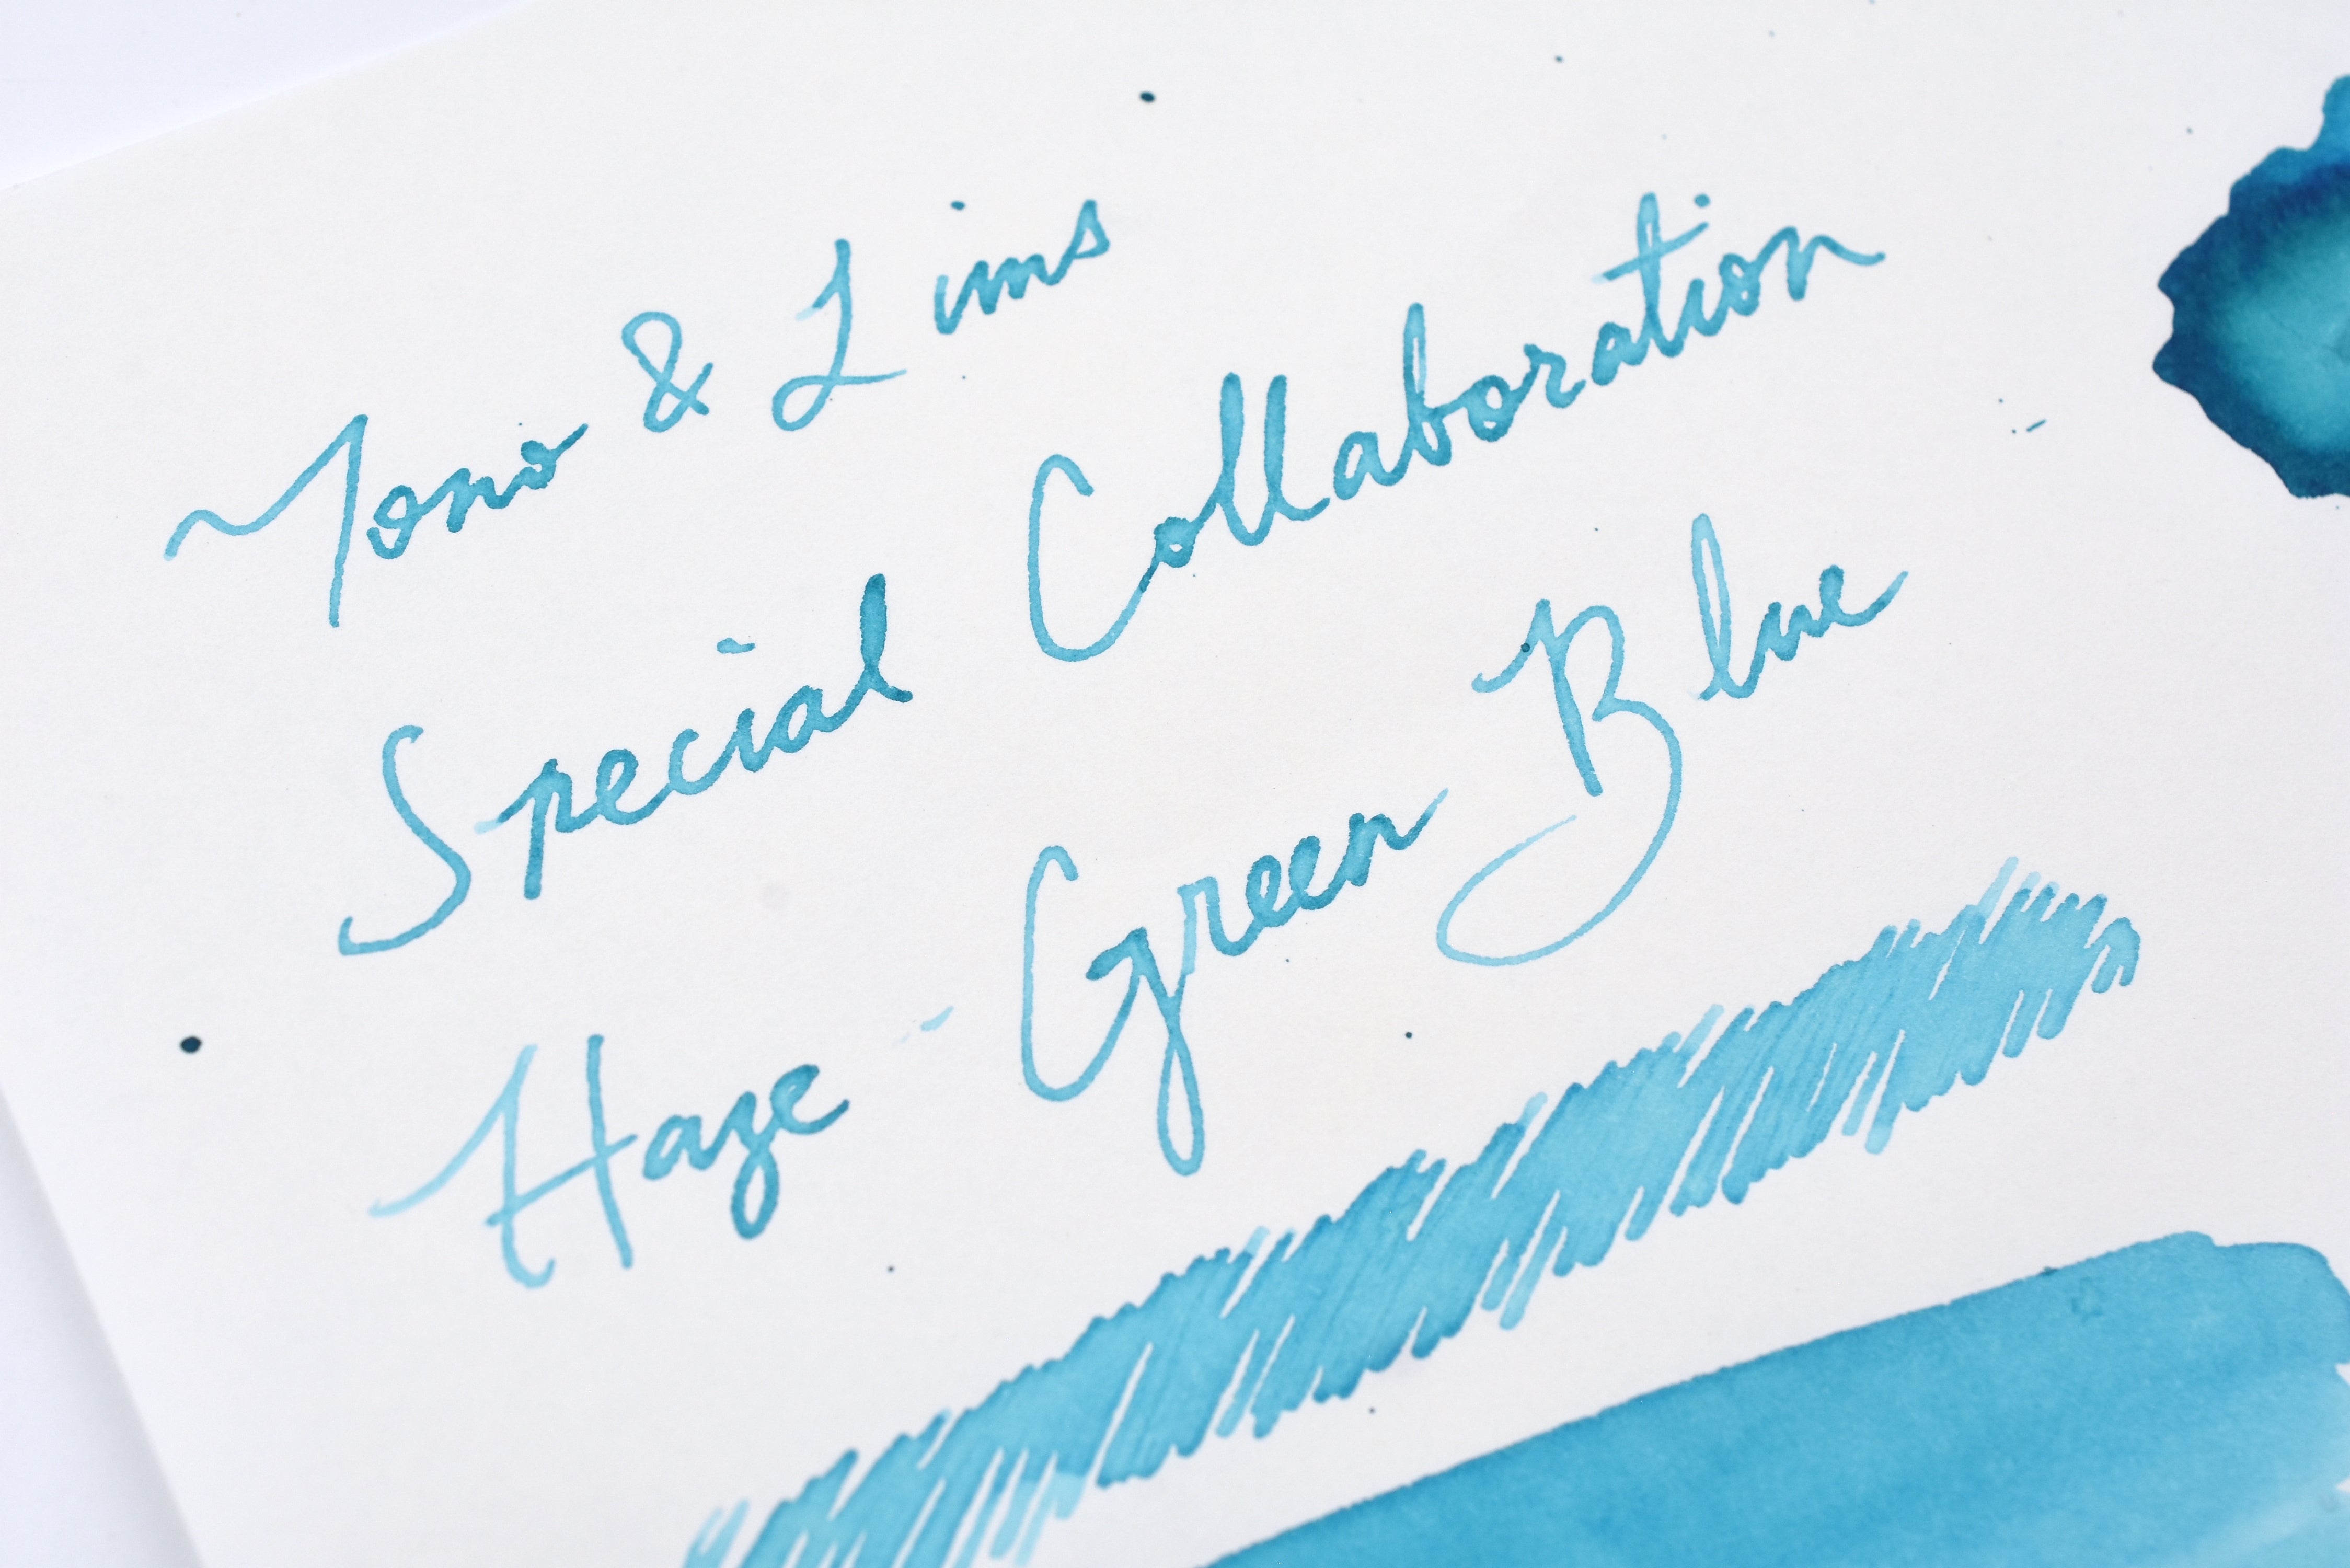 Tono & Lims
Special Collaboration
Haze - Green Blue